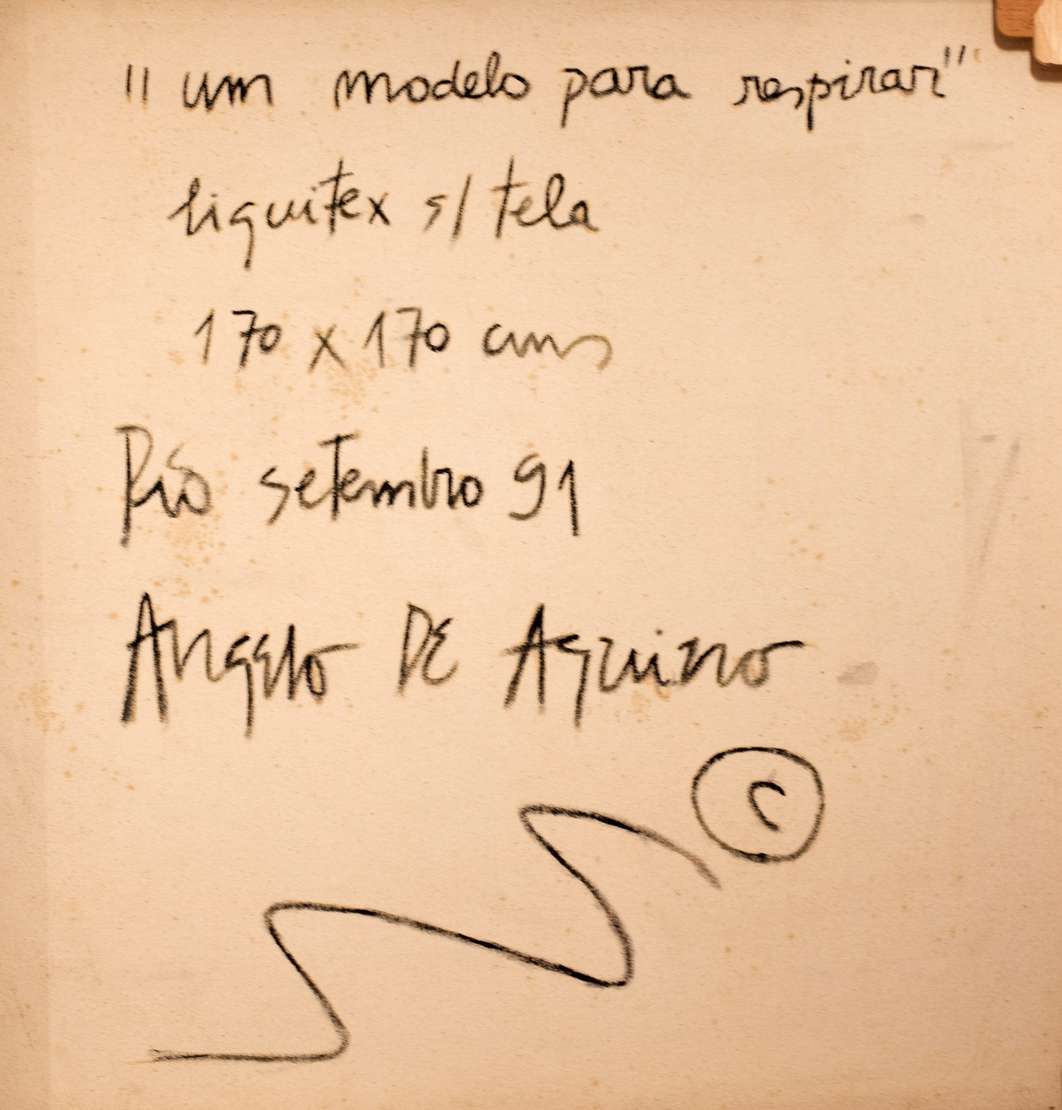 "um modelo para respirar"
liquitex s/ tela
170 x 170 cms
Rio setembro 91
Angelo DE Aquino
©